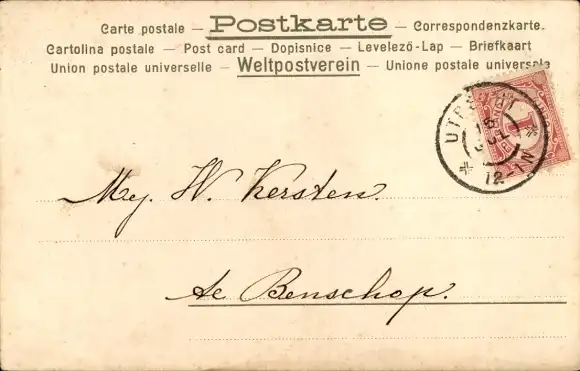 Carte postale — Postkarte — Correspondenzkarte.
Cartolina postale — Post card — Dopisnice — Levelező-Lap — Briefkaart
Union postale universelle — Weltpostverein — Unione postale universale
UTRECHT
18
12-1N
1
Mej. W. Kersten.
te Benschop.